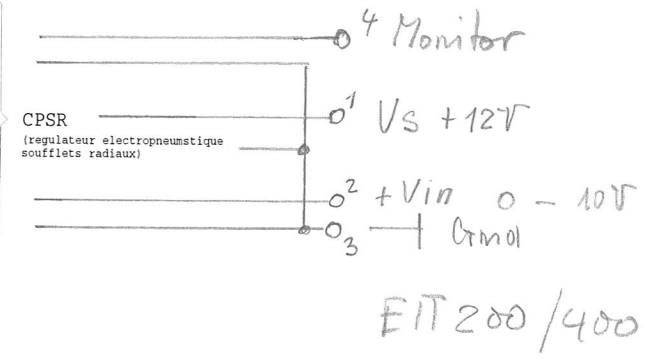 4 Monitor
1 Vs +12V
CPSR
(regulateur electropneumstique
soufflets radiaux)
2 + Vin 0 - 10V
3 Gnd
EIT 200/400